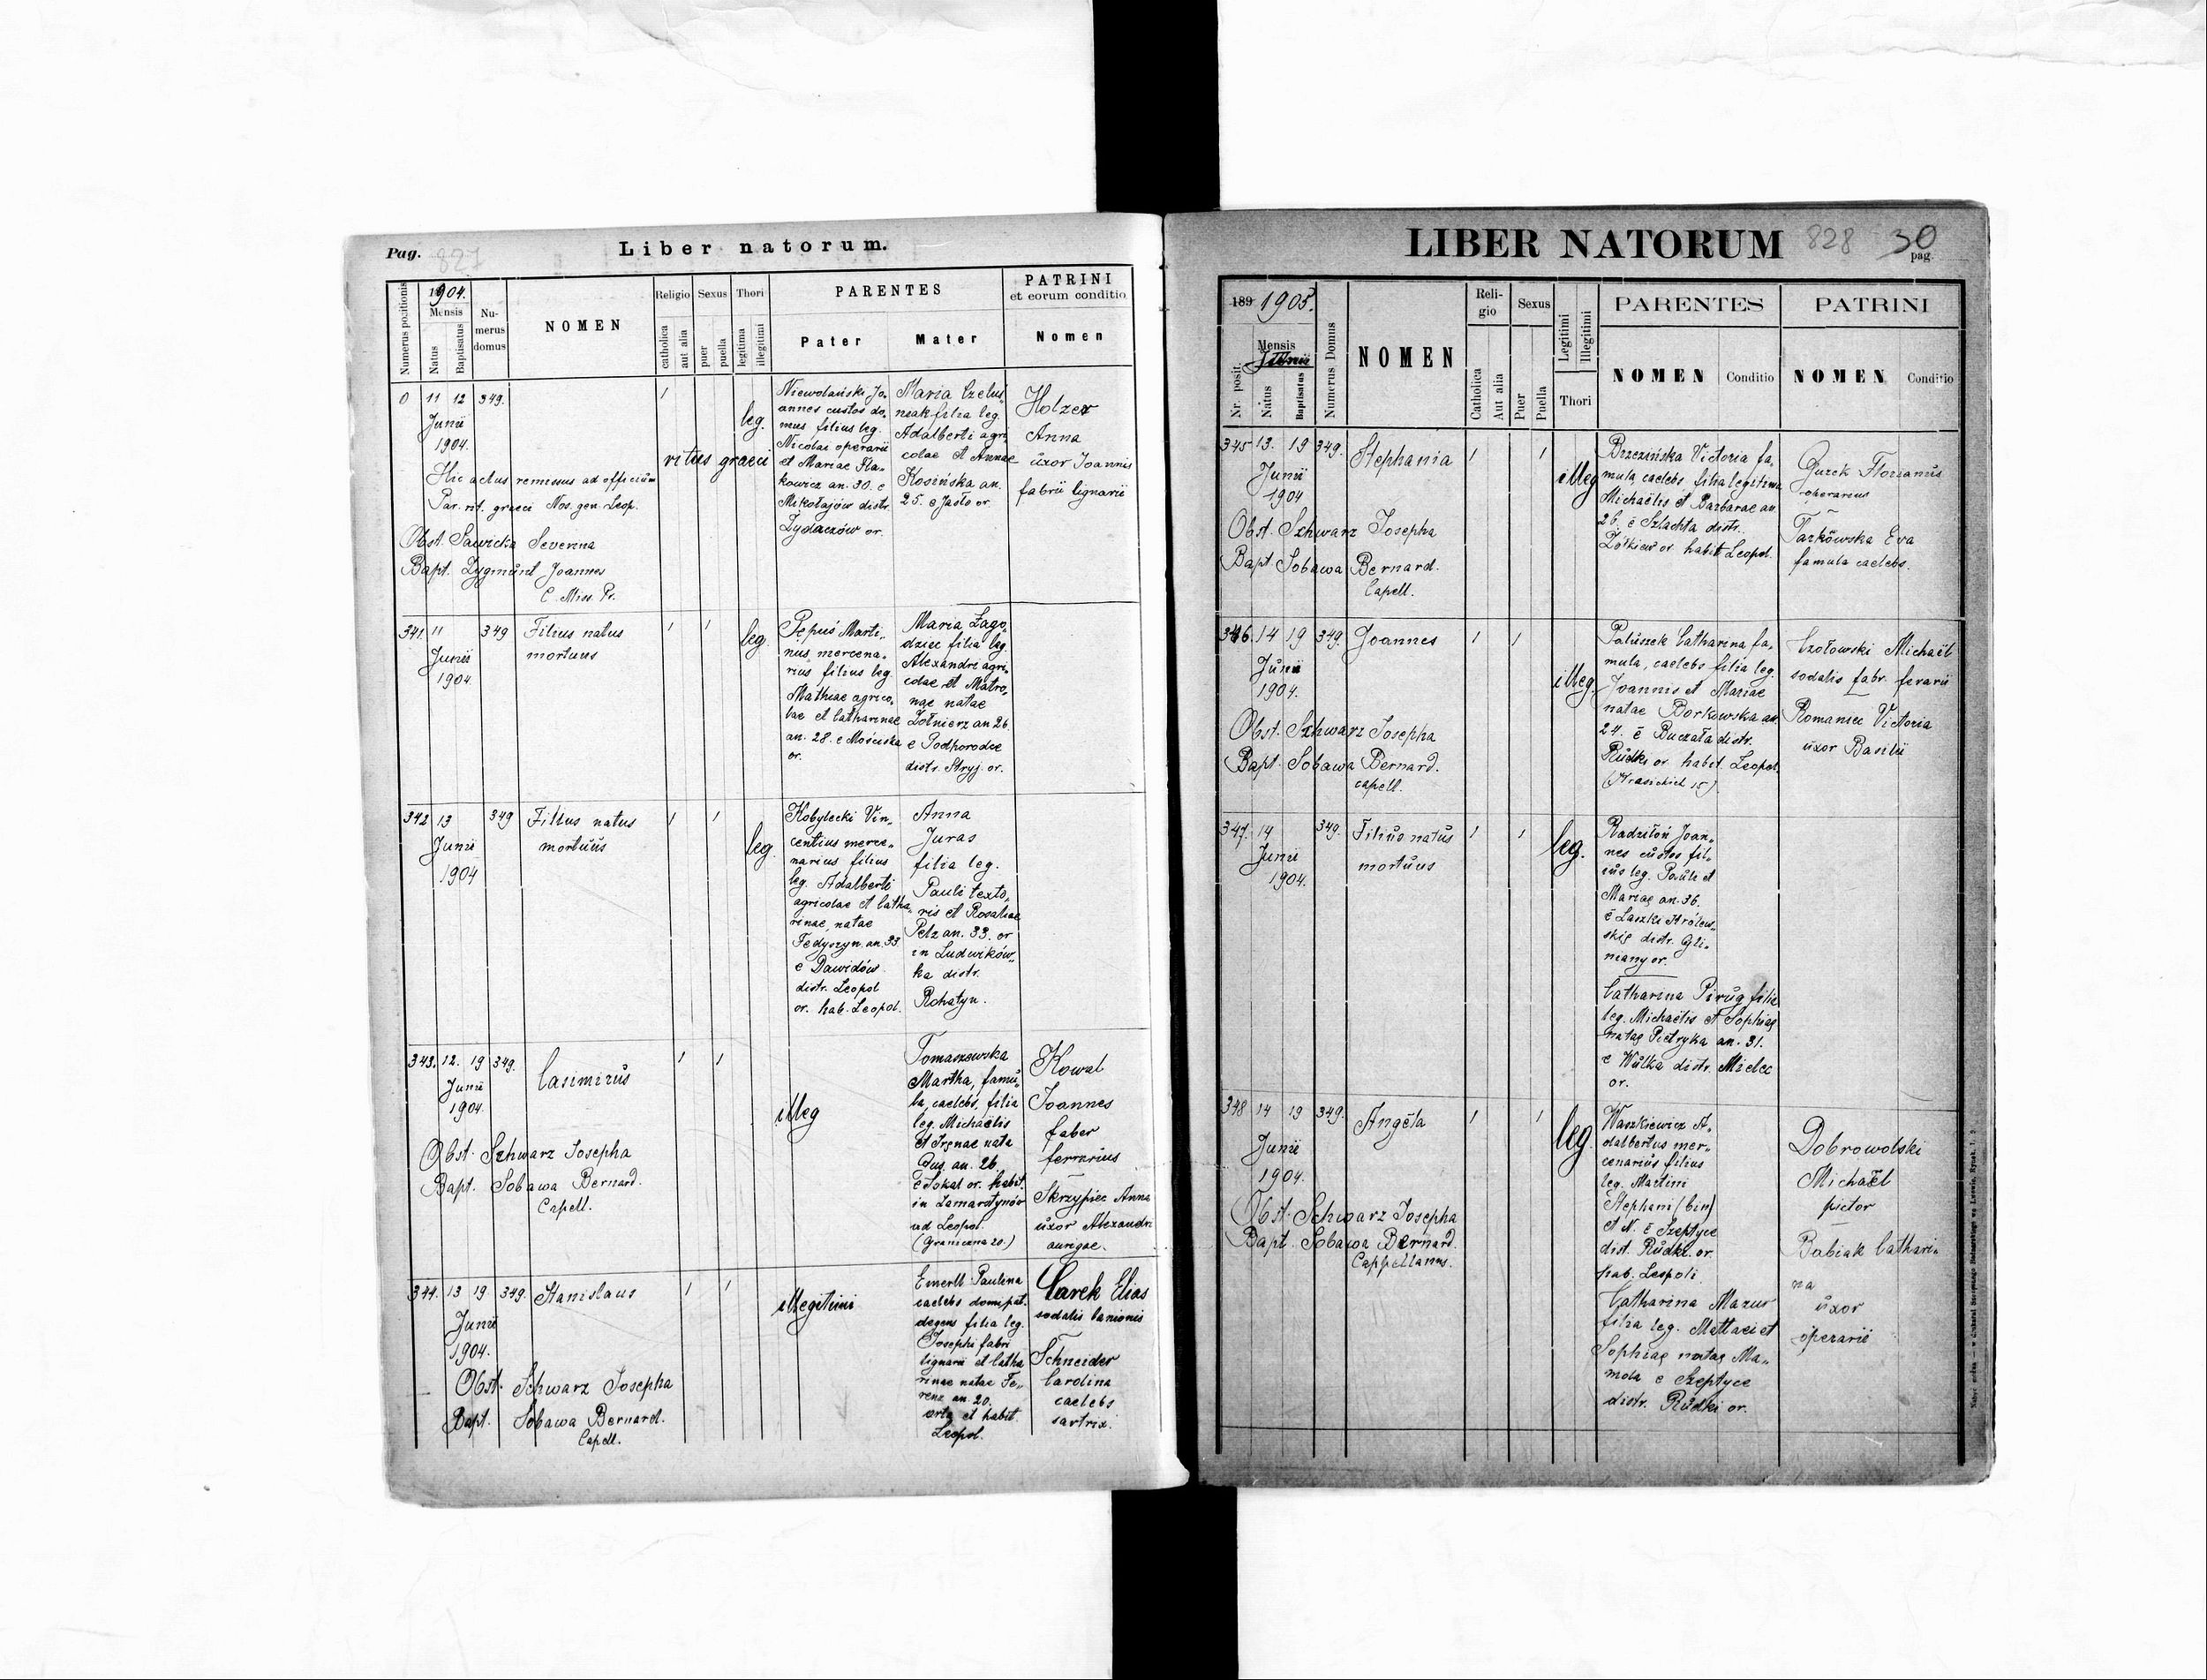 Pag. 827
Liber natorum.
Numerus positionis
1904.
Mensis
Natus
Baptisatus
Numerus domus
NOMEN
Religio
catholica
aut alia
Sexus
puer
puella
Thori
legitima
illegitimi
PARENTES
Pater
Mater
PATRINI
et eorum conditio
Nomen
0 11 12 349. 1
Junii
1904.
leg.
ritus graeci
Hic actus remissus ad officium
Par. rit. graeci Nos. gen. Leop.
Obst. Sawicka Severina
Bapt. Zygmunt Joannes
C. Miss. Pr.
Niewolański Jo„
annes custos do„
mus filius leg.
Nicolai operarii
et Mariae Fla„
kowicz an. 30. e
Mikołajów distr.
Żydaczów or.
Maria Czelus„
niak filia leg.
Adalberti agri
colae et Annae
Kosińska an.
25. e Jasło or.
Holzer
Anna
uxor Joannis
fabrii lignarii
341. 11 349 Filius natus 1 1
mortuus
Junii
1904.
leg.
Pepuś Marti„
nus mercena„
rius filius leg.
Mathiae agrico„
lae et Catharinae
an. 28. e Mościska
or.
Maria Łago„
dzicz filia leg.
Alexandri agri„
colae et Matro„
nae natae
Żołnierz an 26.
e Podhorodce
distr. Stryj. or.
342 13 349 Filius natus 1 1
mortuus
Junii
1904
leg.
Kobylecki Vin„
centius merce„
narius filius
leg. Adalberti
agricolae et Catha„
rinae, natae
Fedyszyn. an. 33
e Dawidów
distr. Leopol
or. hab. Leopol.
Anna
Juras
filia leg.
Pauli texto„
ris et Rosaliae
Pelz an. 33. or
in Ludwików„
ka distr.
Rohatyn.
343. 12. 19 349. Casimirus 1 1
Junii
1904.
illeg
Obst. Schwarz Josepha
Bapt. Sobawa Bernard.
Capell.
Tomaszewska
Martha, famu„
la, caelebs, filia
leg. Michaëlis
et Irenae nata
Gus. an. 26.
e Sokal or. habit.
in Zamarstynów
ad Leopol.
(Graniczna 20.)
Kowal
Joannes
faber
ferrarius
Skrzypiec Anna
uxor Alexandri
aurigae.
344. 13 19 349. Stanislaus 1 1
Junii
1904.
illegitimi
Obst. Schwarz Josepha
Bapt. Sobawa Bernard.
Capell.
Emerll Paulina
caelebs domi pat.
degens filia leg.
Josephi fabri
lignarii et Catha
rinae natae Fe„
renz an. 20.
orta et habit.
Leopol.
Carek Elias
sodalis lanionis
Schneider
Carolina
caelebs
sartrix.
LIBER NATORUM 828 30
pag.
189 1905.
Mensis
Junii
Nr. posit.
Natus
Baptisatus
Numerus Domus
NOMEN
Religio
Catholica
Aut alia
Sexus
Puer
Puella
Legitimi
Illegitimi
Thori
PARENTES
NOMEN Conditio
PATRINI
NOMEN Conditio
345 13. 19 349. Stephania 1 1
Junii
1904
illeg
Obst. Schwarz Josepha
Bapt. Sobawa Bernard.
Capell.
Brzezińska Victoria fa„
mula, caelebs filia legitima
Michaëlis et Barbarae an.
26. e Szlachta distr.
Żółkiew or habit Leopol.
Gurck Florianus
operarius
Tarkowska Eva
famula caelebs.
346. 14 19 349. Joannes 1 1
Junii
1904.
illeg.
Obst. Schwarz Josepha
Bapt. Sobawa Bernard.
capell.
Paluszek Catharina fa„
mula, caelebs filia leg.
Joannis et Mariae
natae Borkowska an.
24. e Buczała distr.
Rudki or habit Leopol.
(Krasickich 15).
Czołowski Michaël
sodalis fabr. ferarii
Romaniec Victoria
uxor Basilii
347. 14 349. Filius natus 1 1
mortuus
Junii
1904.
leg.
Radziłoń Joan„
nes custos fil„
ius leg. Pauli et
Mariae an. 36.
e Laszki Królew„
skie distr. Gli„
niany or.
Catharina Piróg filia
leg. Michaëlis et Sophiae
natae Pietryka an. 31.
e Wulka distr. Mielec
or.
348 14 19 349. Angela 1 1
Junii
1904.
leg.
Obst. Schwarz Josepha
Bapt. Sobawa Bernard.
Cappellanus.
Waszkiewicz A„
dalbertus mer„
cenarius filius
leg. Martini
Stephani (bin)
et N. e Szeptyce
dist. Rudki or.
hab. Leopoli.
Catharina Mazur
filia leg. Mathaei et
Sophiae natae Ma„
mola e Szeptyce
distr. Rudki or.
Dobrowolski
Michaël
pictor
Babiak Cathari„
na
uxor
operarii